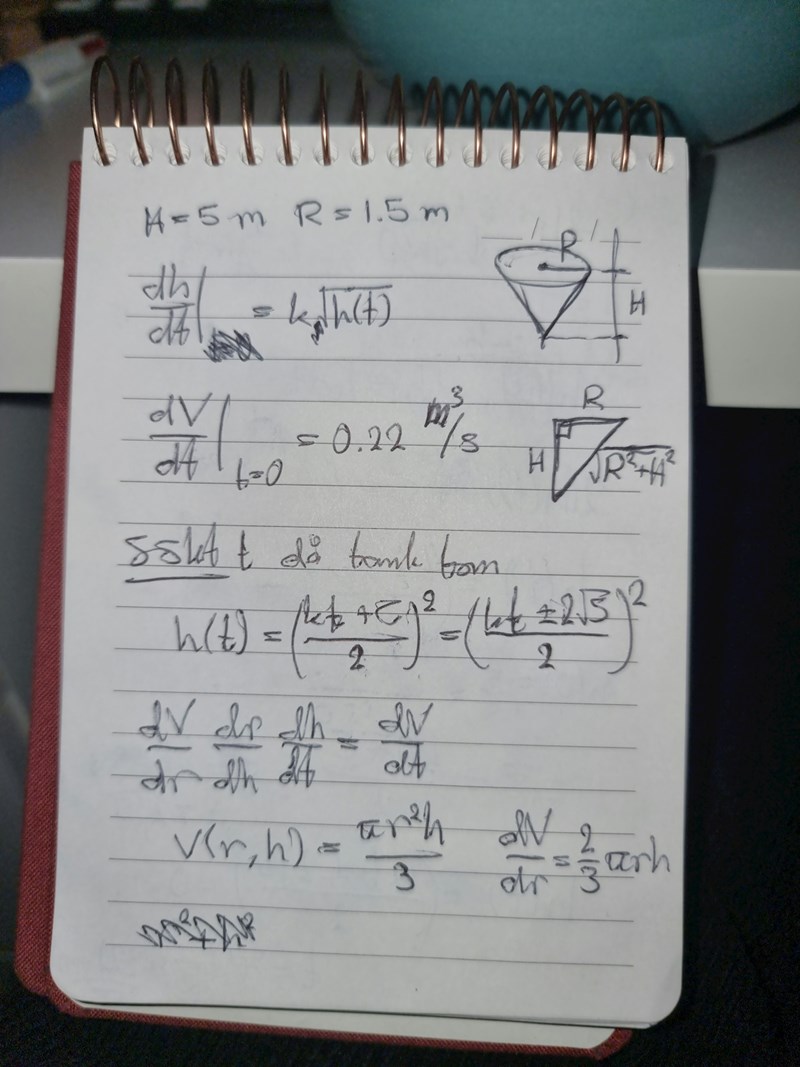 H = 5 m R = 1.5 m
R
H
dh/dt| = k√h(t)
R
H
√R²+H²
dV/dt|t=0 = 0.22 m³/s
sökt t då tank tom
h(t) = ((kt + C)/2)² = ((kt ± 2√5)/2)²
dV/dr dr/dh dh/dt = dV/dt
V(r, h) = πr²h/3 dV/dr = 2/3 πrh